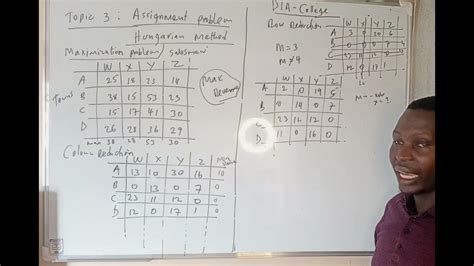 Topic 3: Assignment problem
Hungarian method
Maximization problem/
W X Y Z
A 25 18 23 14
B 38 15 53 23
C 15 17 41 30
D 26 28 36 29
max 38 28 53 30
Towns
Max
Revenue
Column Reduction
W X Y Z
A 13 10 30 16 10
B 0 13 0 7 0
C 23 11 12 0 0
D 12 0 17 1 0
DIA-College
Row Reduction
M = 3
M ≠ 4
W X Y Z
A 3 0 20 6
B 0
D 12 0 17 1
W X Y Z
A 2 0 19 5
B 0 14 0 7
C 23 12 12 0
D 11 0 16 0